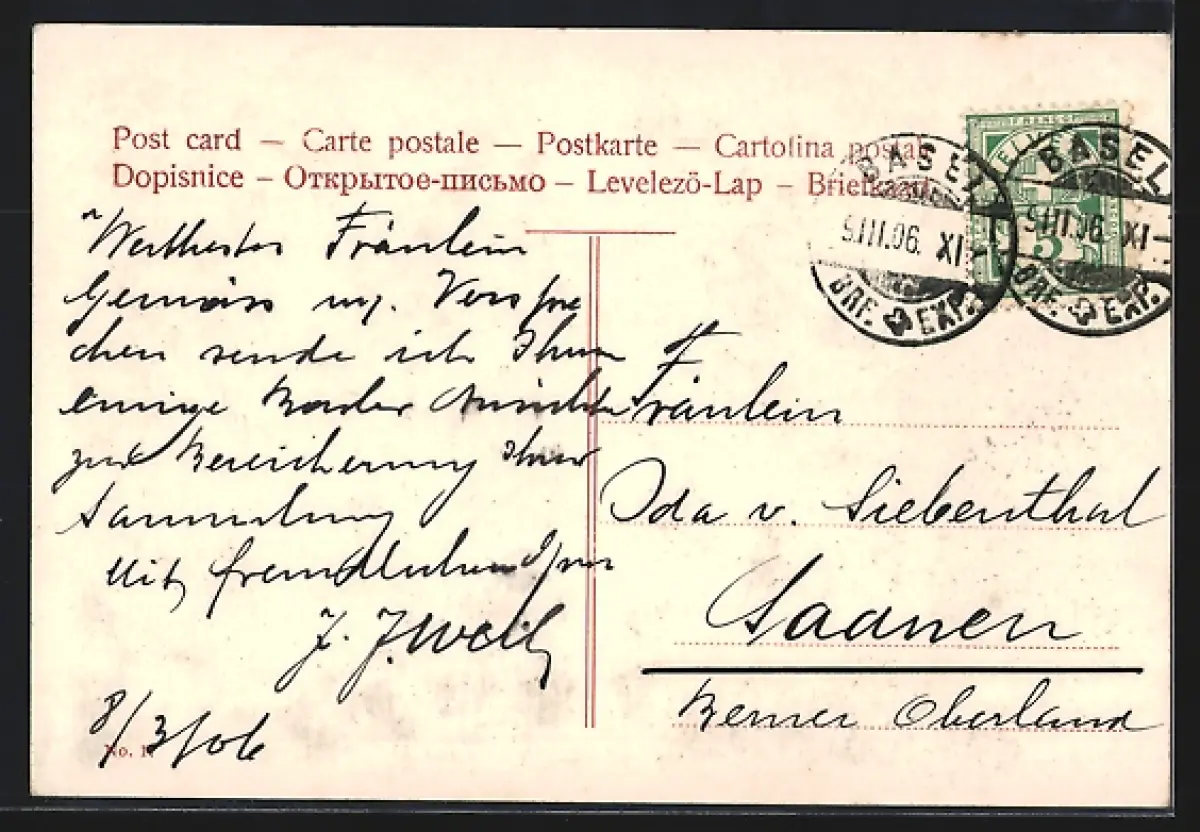 Post card — Carte postale — Postkarte — Cartolina postale
Dopisnice – Открытое-письмо – Levelező-Lap – Briefkaart
Werthestes Fräulein
Gemäss m. Verspre
chen sende ich Ihnen
einige Basler Ansichten
zur Bereicherung Ihrer
Sammlung
Mit freundlichen
J. J. Weil
8/3/06
No. 1
HELVETIA
FRANCO
5
BASEL
9.III.06. XI–
BRF. EXP.
BASEL
9.III.06. XI–
BRF. EXP.
Fräulein
Ida v. Siebenthal
Saanen
Berner Oberland